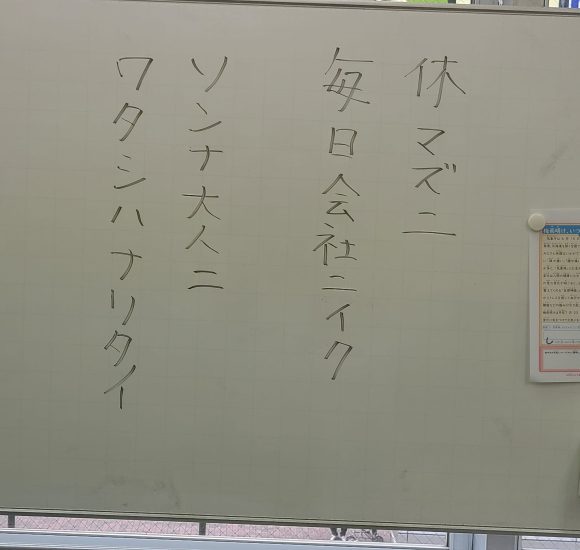 休マズニ
毎日会社ニイク
ソンナ大人ニ
ワタシハナリタイ